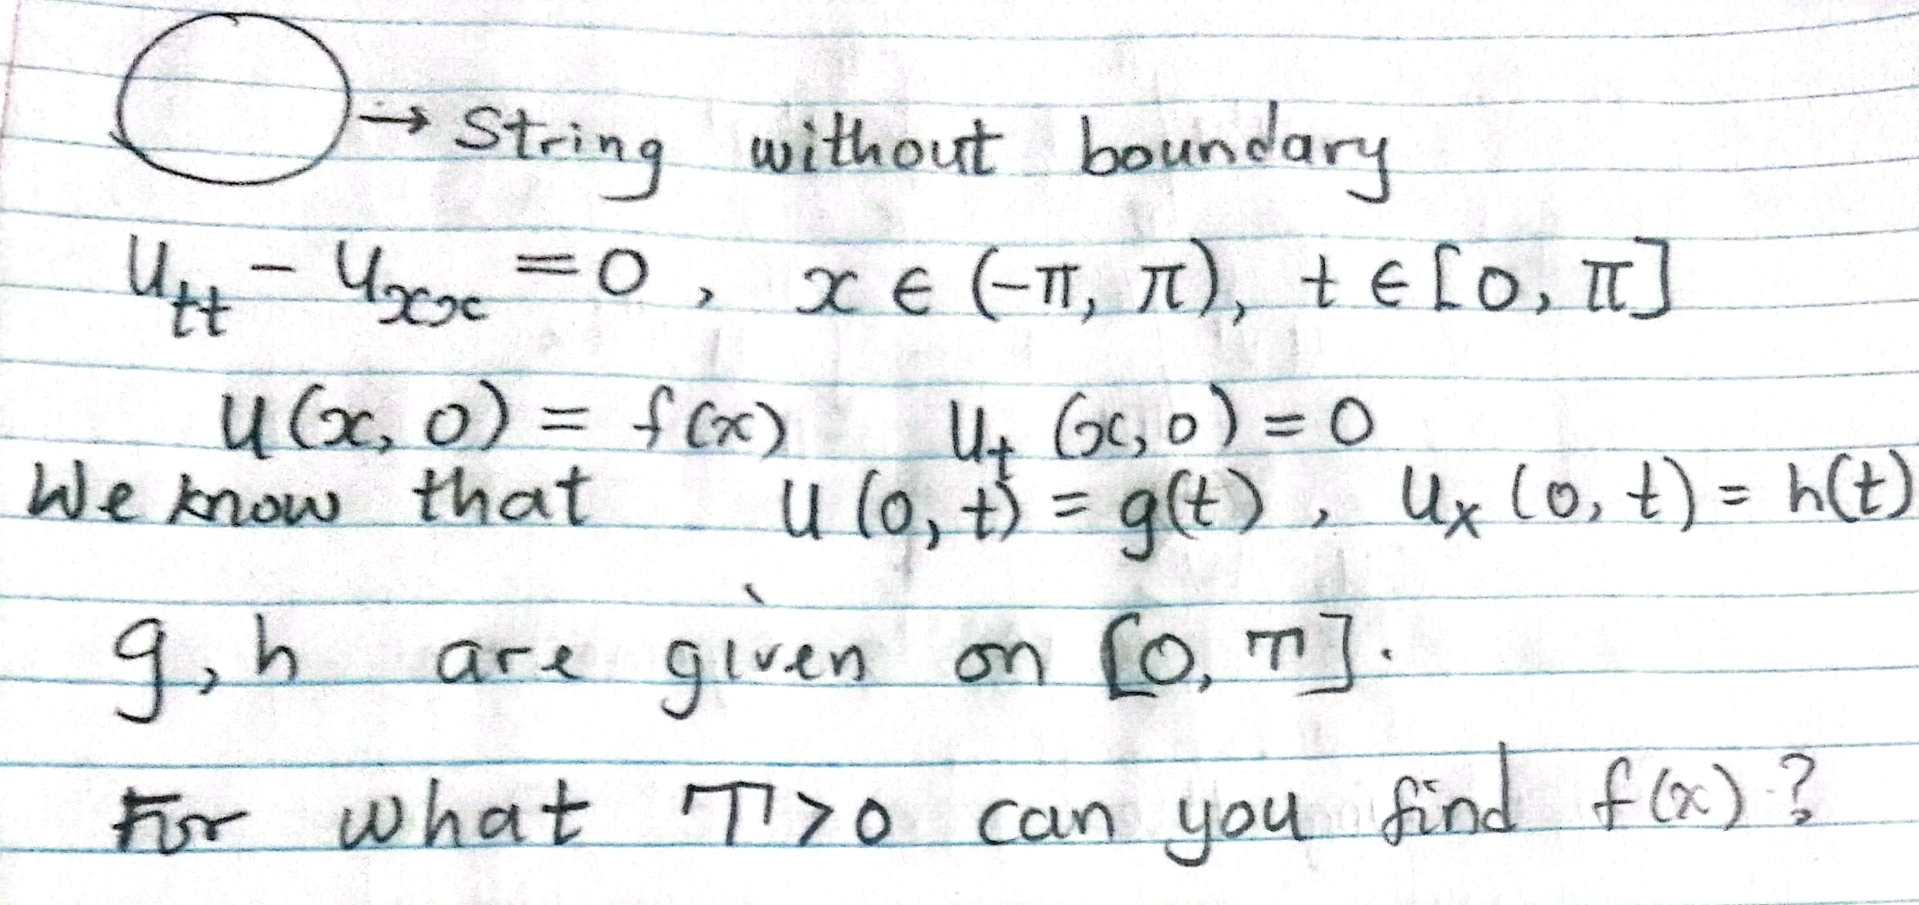 → String without boundary
u_tt - u_xx = 0, x ∈ (-π, π), t ∈ [0, π]
u(x, 0) = f(x) u_t (x, 0) = 0
We know that u(0, t) = g(t), u_x (0, t) = h(t)
g, h are given on [0, T].
For what T>0 can you find f(x)?